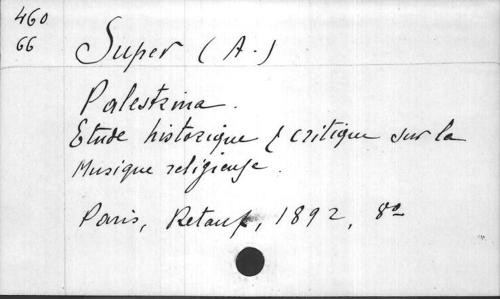 460
66
Super (A.)
Palestrina.
Etude historique & critique sur la
Musique religieuse.
Paris, Retaux, 1892, 8º